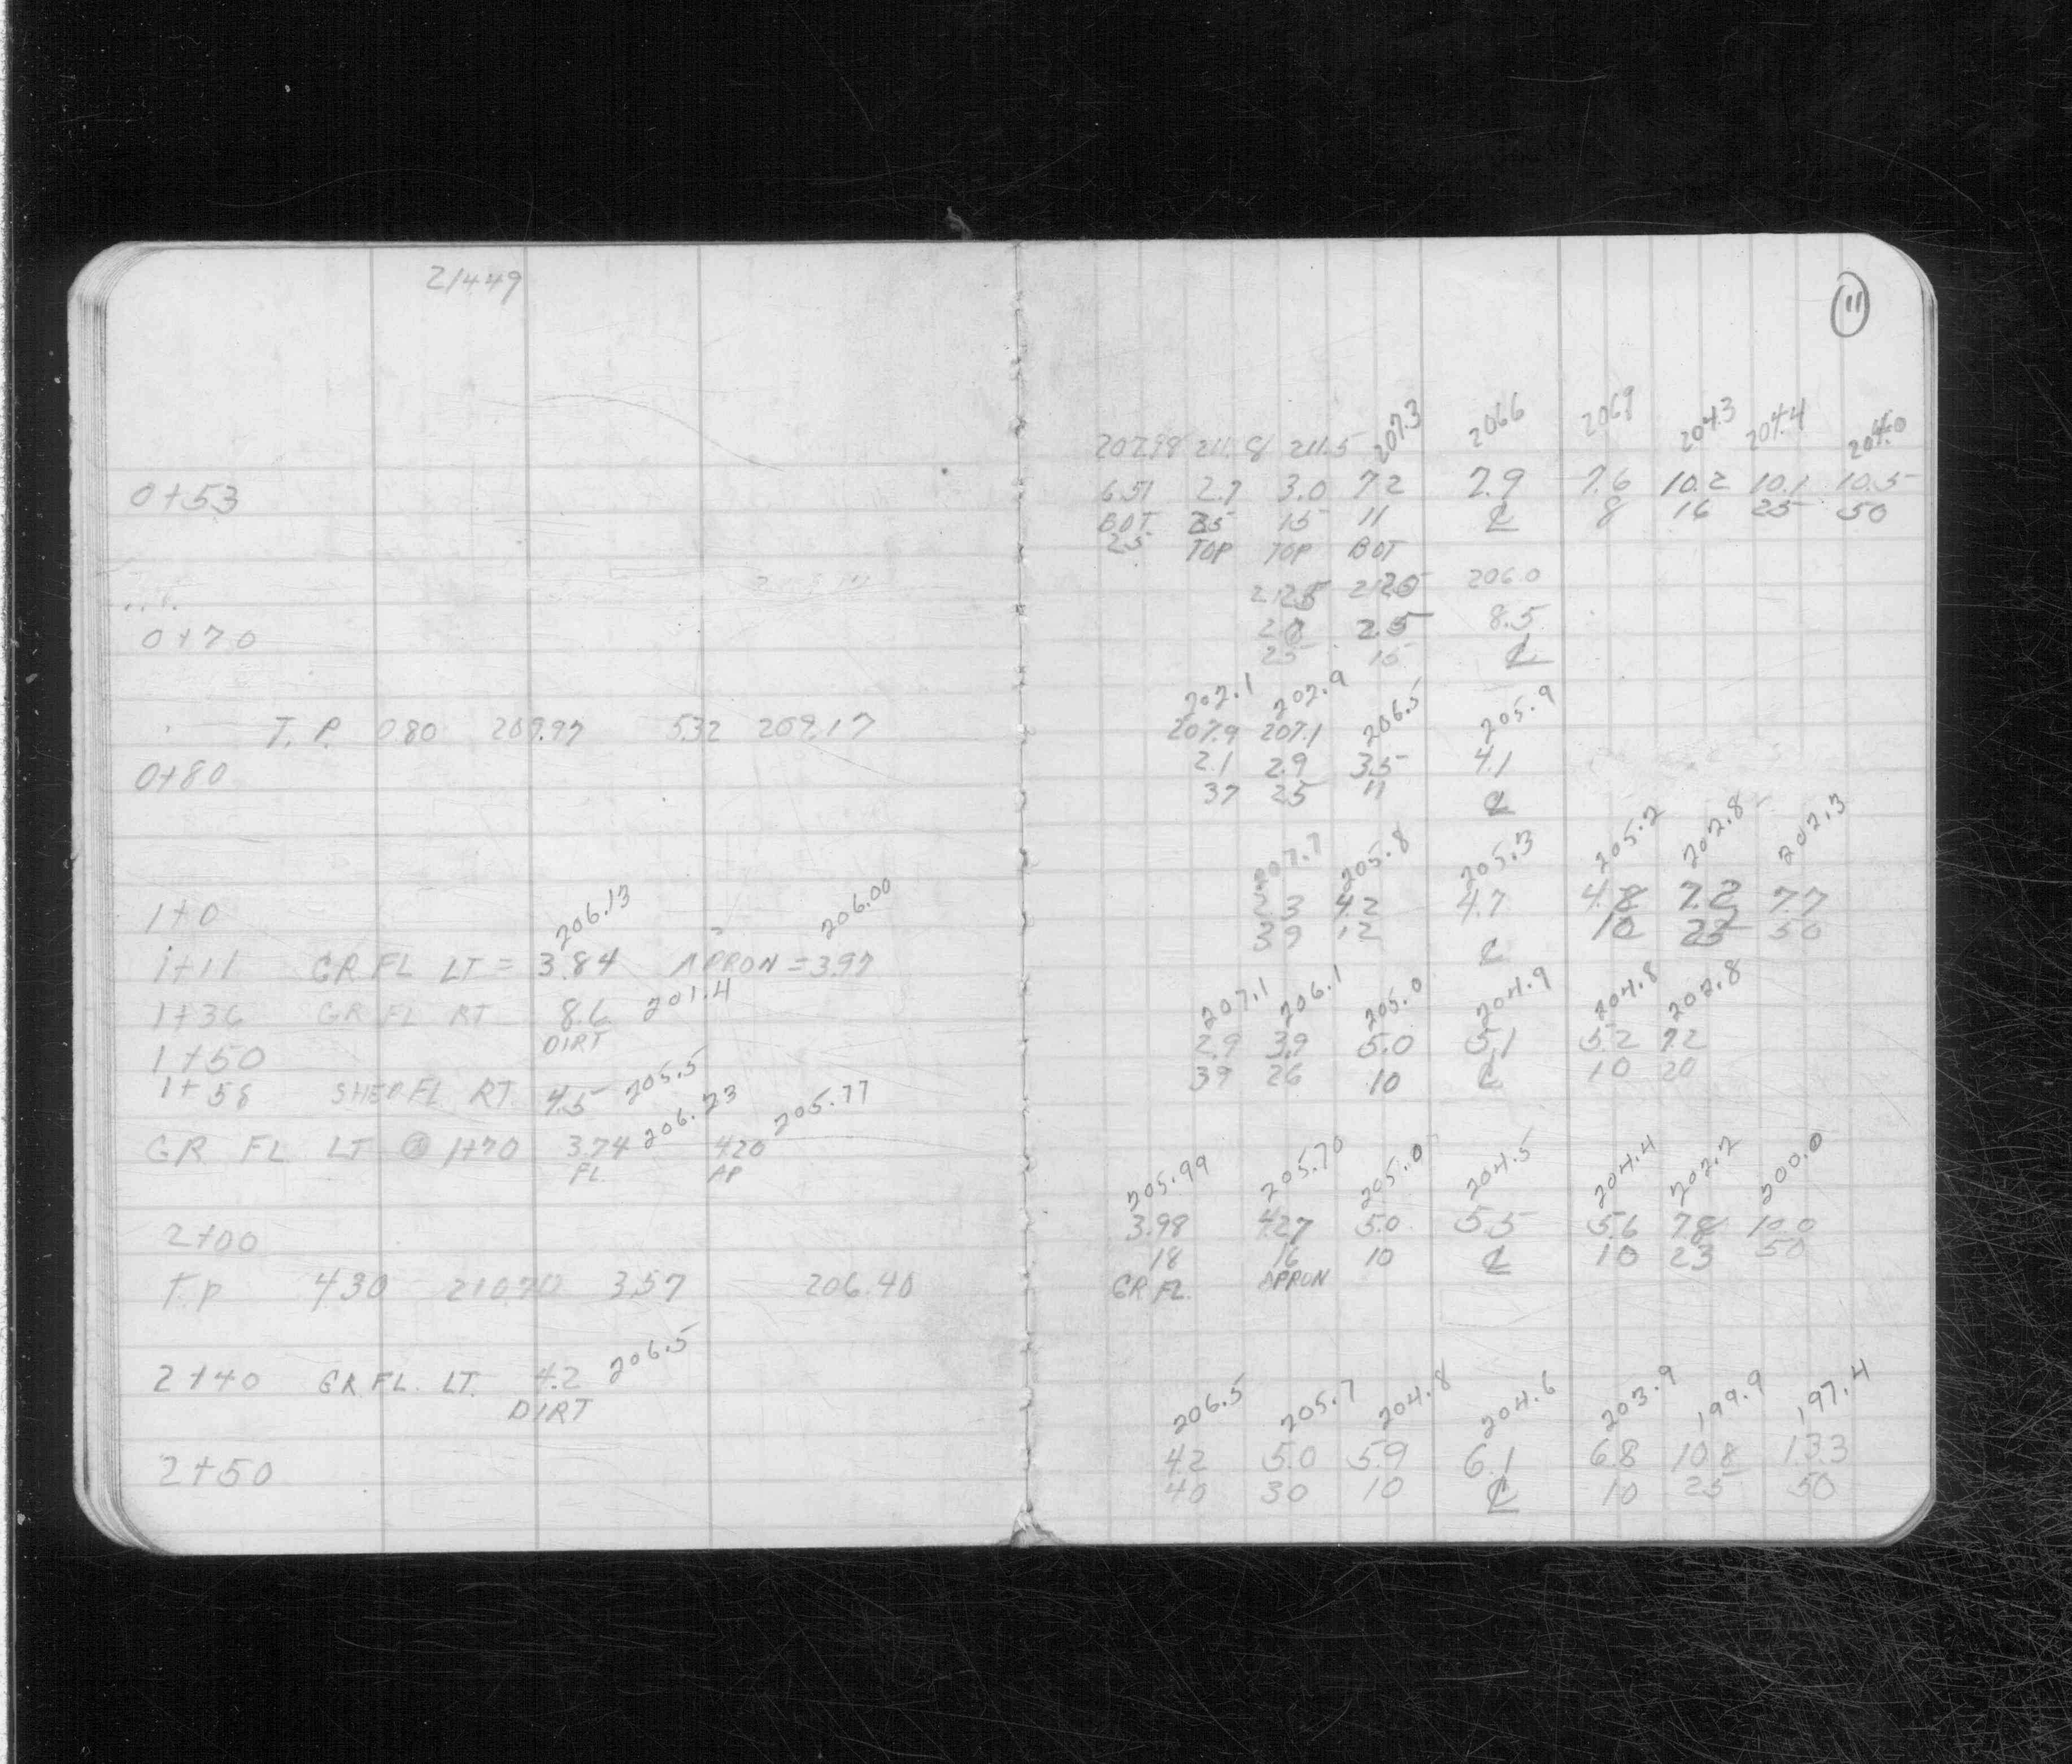 21449
0+53
0+70
T.P. 0.80 209.97 5.32 209.17
0+80
1+0
206.13 206.00
1+11 GR FL LT = 3.84 APRON = 3.97
1+36 GR FL RT 8.6 201.4
DIRT
1+50
1+58 SHED FL RT. 4.5 205.5
GR FL LT @ 1+70 3.74 206.23 4.20 205.77
FL. AP
2+00
T.P 4.30 210.70 3.57 206.40
2+40 GR. FL. LT. 4.2 206.5
DIRT
2+50
11
207.98 211.8 211.5 207.3 206.6 206.9 204.3 204.4 204.0
6.51 2.7 3.0 7.2 7.9 7.6 10.2 10.1 10.5
BOT. 25 15 11 ℄ 8 16 25 50
25 TOP TOP BOT
212.5 212.0 206.0
2.0 2.5 8.5
25 15 ℄
202.1 202.9
207.9 207.1 206.5 205.9
2.1 2.9 3.5 4.1
37 25 11 ℄
207.7 205.8 205.3 205.2 202.8 202.3
2.3 4.2 4.7 4.8 7.2 7.7
39 12 ℄ 10 25 50
207.1 206.1 205.0 204.9 204.8 202.8
2.9 3.9 5.0 5.1 5.2 7.2
39 26 10 ℄ 10 20
205.99 205.70 205.0 204.5 204.4 202.2 200.0
3.98 4.27 5.0 5.5 5.6 7.8 10.0
18 16 10 ℄ 10 23 50
GR FL. APRON
206.5 205.7 204.8 204.6 203.9 199.9 197.4
4.2 5.0 5.9 6.1 6.8 10.8 13.3
40 30 10 ℄ 10 25 50